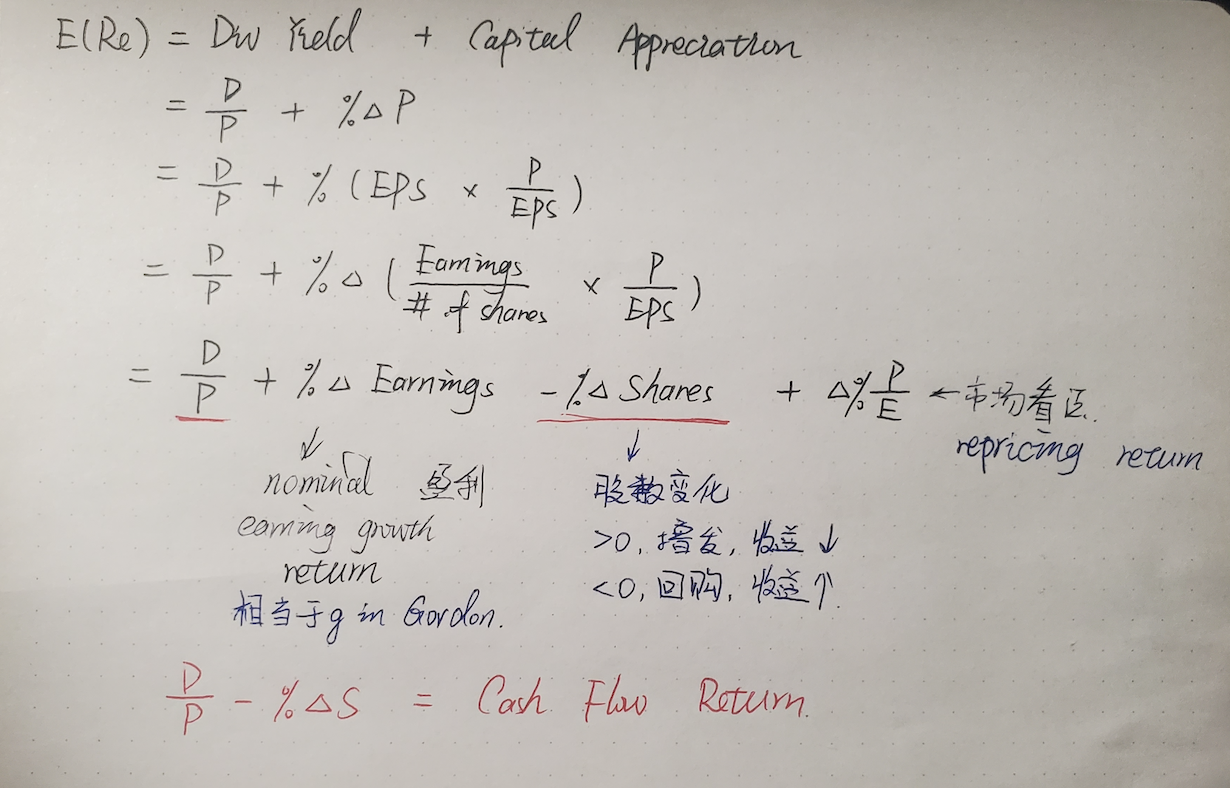 E(Re) = Div Yield + Capital Appreciation
= D/P + %△P
= D/P + % (EPS × P/EPS)
= D/P + %△ (Earnings/# of shares × P/EPS)
= D/P + %△ Earnings - %△ Shares + △% P/E ← 市场看医.
repricing return
↓ ↓
nominal 盈利 股数变化
earning growth >0, 增发, 收益↓
return <0, 回购, 收益↑
相当于 g in Gordon.
D/P - %△S = Cash Flow Return.